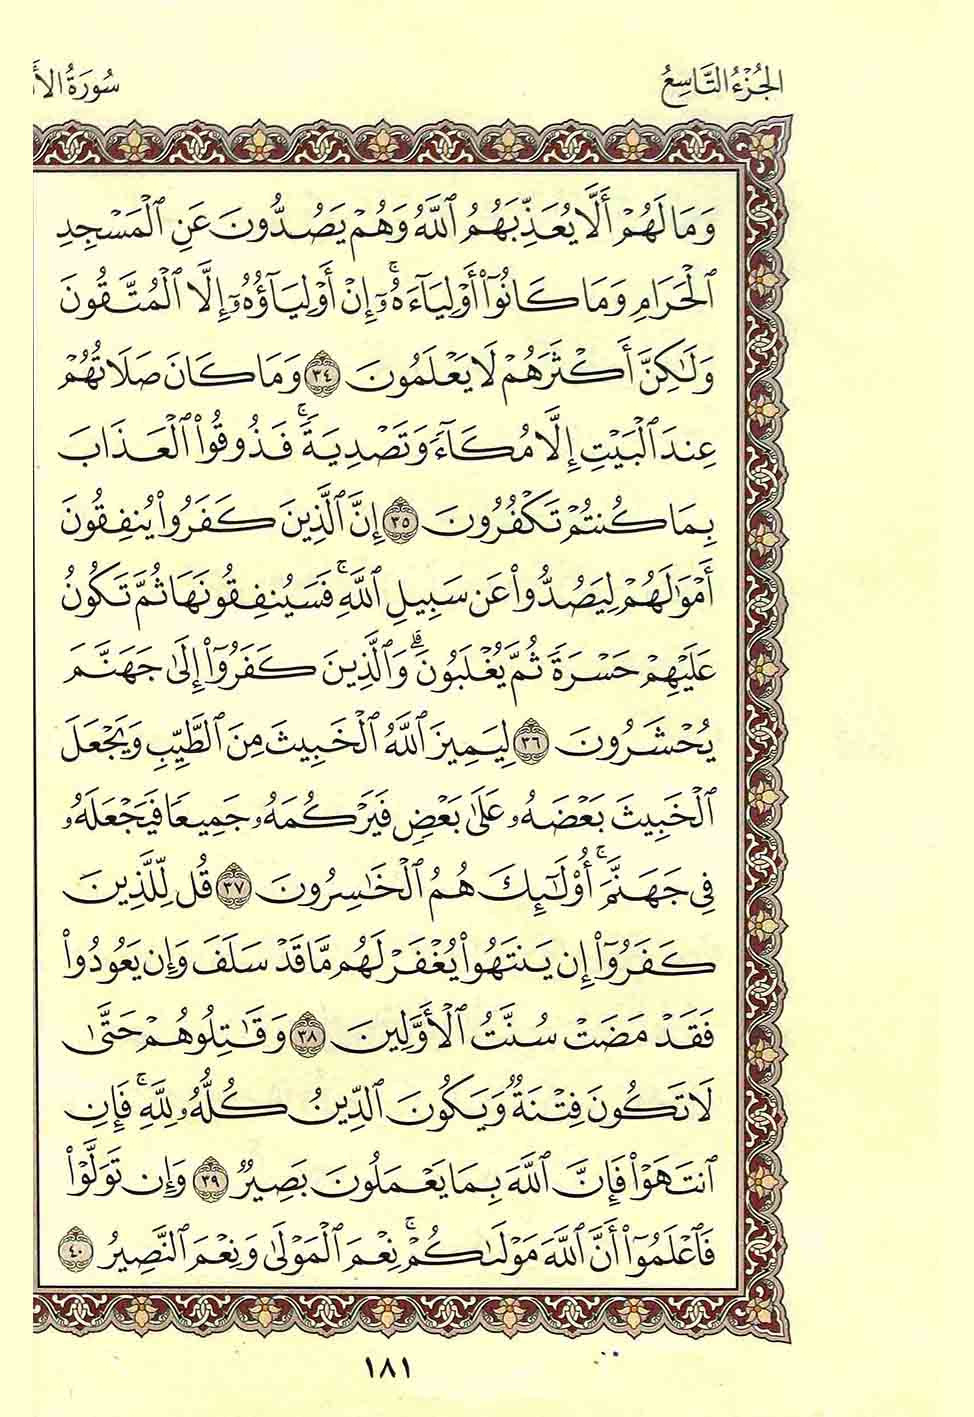 الجُزْءُ التَّاسِعُ
سُورَةُ الأَ
وَمَا لَهُمْ أَلَّا يُعَذِّبَهُمُ ٱللَّهُ وَهُمْ يَصُدُّونَ عَنِ ٱلْمَسْجِدِ
ٱلْحَرَامِ وَمَا كَانُوٓاْ أَوْلِيَآءَهُۥٓۚ إِنْ أَوْلِيَآؤُهُۥٓ إِلَّا ٱلْمُتَّقُونَ
وَلَٰكِنَّ أَكْثَرَهُمْ لَا يَعْلَمُونَ ٣٤ وَمَا كَانَ صَلَاتُهُمْ
عِندَ ٱلْبَيْتِ إِلَّا مُكَآءً وَتَصْدِيَةًۚ فَذُوقُواْ ٱلْعَذَابَ
بِمَا كُنتُمْ تَكْفُرُونَ ٣٥ إِنَّ ٱلَّذِينَ كَفَرُواْ يُنفِقُونَ
أَمْوَٰلَهُمْ لِيَصُدُّواْ عَن سَبِيلِ ٱللَّهِۚ فَسَيُنفِقُونَهَا ثُمَّ تَكُونُ
عَلَيْهِمْ حَسْرَةً ثُمَّ يُغْلَبُونَۗ وَٱلَّذِينَ كَفَرُوٓاْ إِلَىٰ جَهَنَّمَ
يُحْشَرُونَ ٣٦ لِيَمِيزَ ٱللَّهُ ٱلْخَبِيثَ مِنَ ٱلطَّيِّبِ وَيَجْعَلَ
ٱلْخَبِيثَ بَعْضَهُۥ عَلَىٰ بَعْضٍ فَيَرْكُمَهُۥ جَمِيعًا فَيَجْعَلَهُۥ
فِى جَهَنَّمَۚ أُوْلَٰٓئِكَ هُمُ ٱلْخَٰسِرُونَ ٣٧ قُل لِّلَّذِينَ
كَفَرُوٓاْ إِن يَنتَهُواْ يُغْفَرْ لَهُم مَّا قَدْ سَلَفَ وَإِن يَعُودُواْ
فَقَدْ مَضَتْ سُنَّتُ ٱلْأَوَّلِينَ ٣٨ وَقَٰتِلُوهُمْ حَتَّىٰ
لَا تَكُونَ فِتْنَةٌ وَيَكُونَ ٱلدِّينُ كُلُّهُۥ لِلَّهِۚ فَإِنِ
ٱنتَهَوْاْ فَإِنَّ ٱللَّهَ بِمَا يَعْمَلُونَ بَصِيرٌ ٣٩ وَإِن تَوَلَّوْاْ
فَٱعْلَمُوٓاْ أَنَّ ٱللَّهَ مَوْلَىٰكُمْۚ نِعْمَ ٱلْمَوْلَىٰ وَنِعْمَ ٱلنَّصِيرُ ٤٠
١٨١